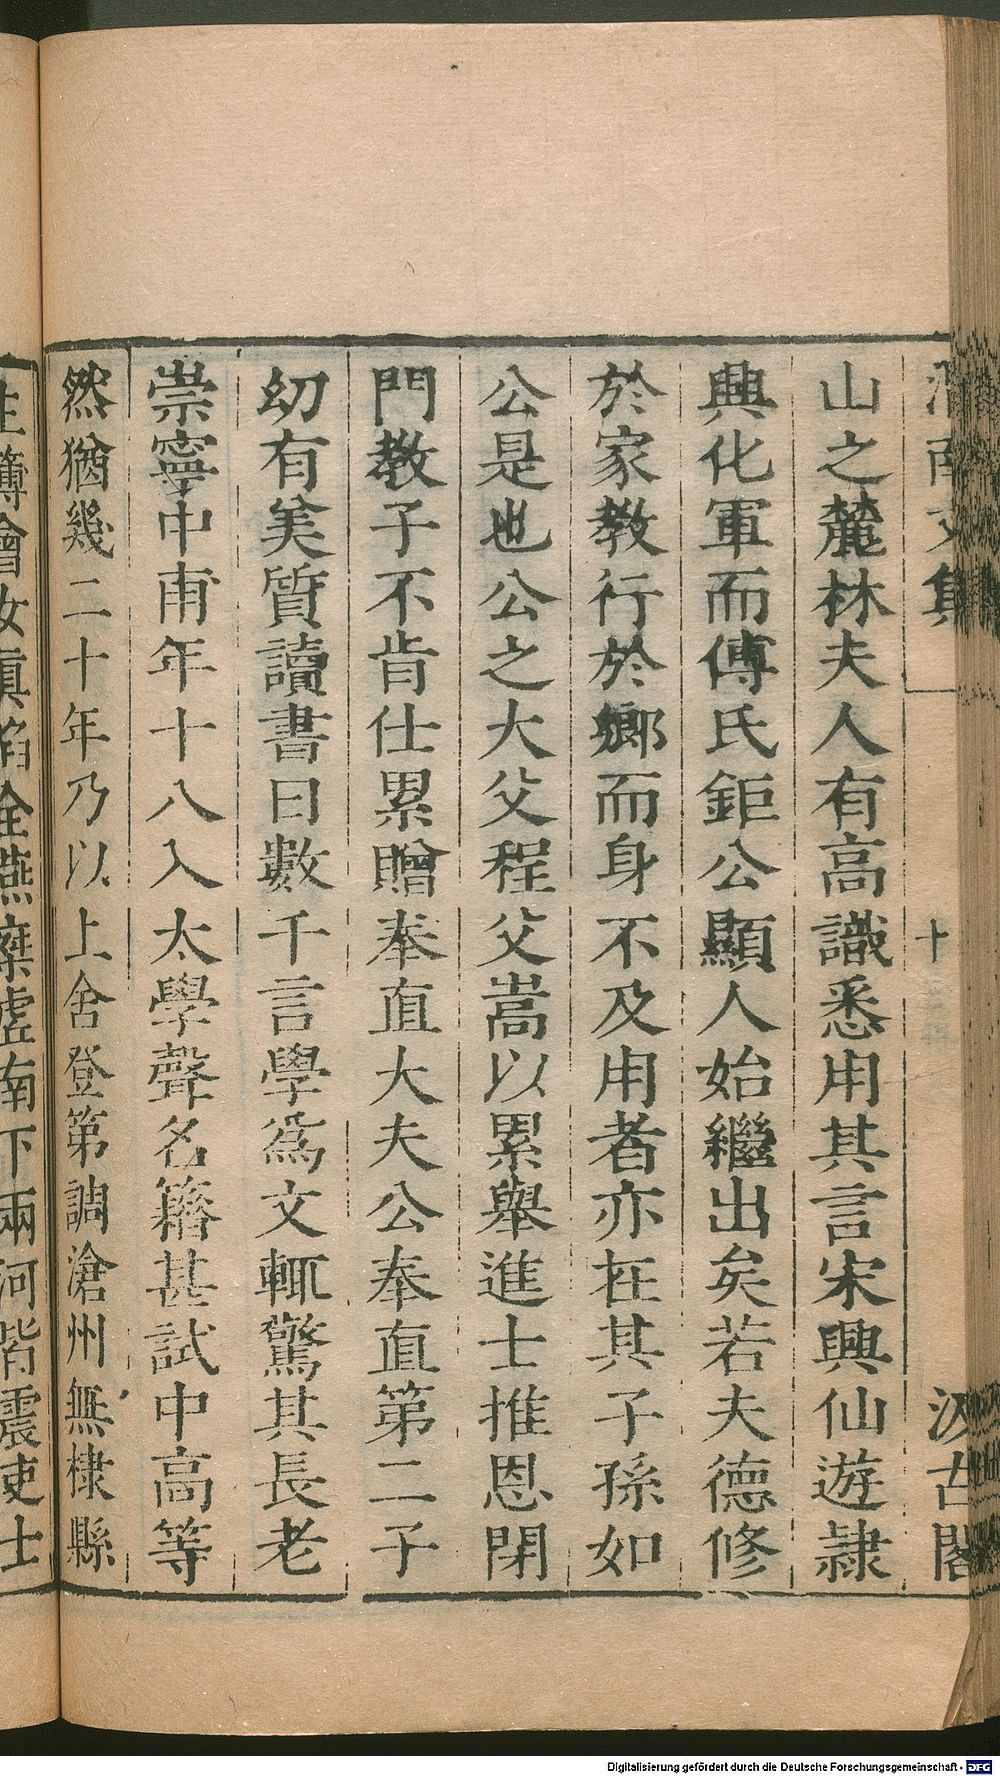 渭南文集
十
汲古閣
山之麓林夫人有高識悉用其言宋興仙遊隷
興化軍而傅氏鉅公顯人始繼出矣若夫德修
於家教行於鄉而身不及用者亦在其子孫如
公是也公之大父程父嵩以累舉進士推恩閉
門教子不肯仕累贈奉直大夫公奉直第二子
幼有美質讀書日數千言學爲文輒驚其長老
崇寧中甫年十八入太學聲名籍甚試中高等
然猶幾二十年乃以上舍登第調滄州無棣縣
主簿會女真陷全燕棄虛南下兩河皆震吏士
Digitalisierung gefördert durch die Deutsche Forschungsgemeinschaft - DFG